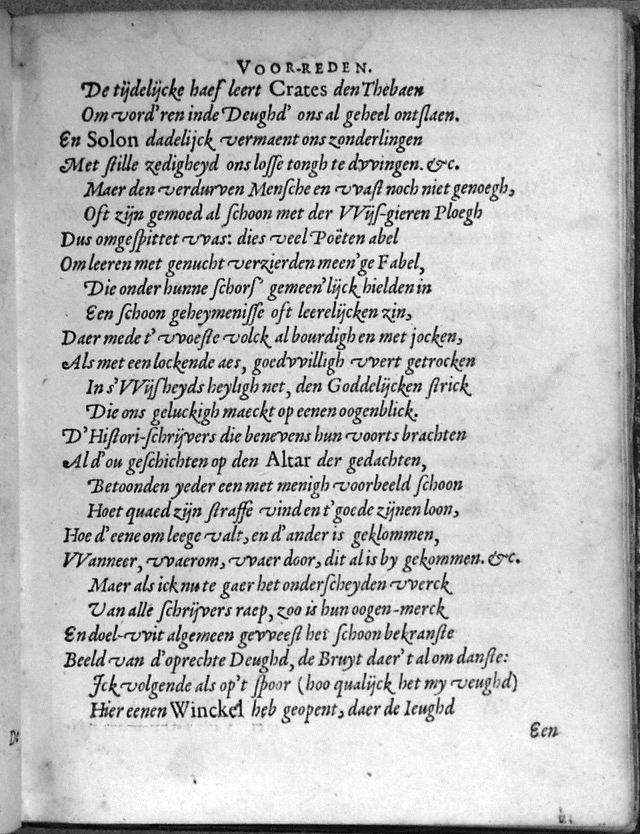 VOOR-REDEN.
De tijdelijcke haef leert Crates den Thebaen
Om vord'ren inde Deughd' ons al geheel ontslaen.
En Solon dadelijck vermaent ons zonderlingen
Met stille zedigheyd ons losse tongh te dvvingen. &c.
Maer den verdurven Mensche en vvast noch niet genoegh,
Oft zijn gemoed al schoon met der VVijs-gieren Ploegh
Dus omgespittet vvas: dies veel Poëten abel
Om leeren met genucht verzierden meen'ge Fabel,
Die onder hunne schors' gemeen'lijck hielden in
Een schoon geheymenisse oft leerelijcken zin,
Daer mede t' vvoeste volck al bourdigh en met jocken,
Als met een lockende aes, goedvvilligh vvert getrocken
In s'VVijsheyds heyligh net, den Goddelijcken strick
Die ons geluckigh maeckt op eenen oogenblick.
D'Histori-schrijvers die benevens hun voorts brachten
Al d'ou geschichten op den Altar der gedachten,
Betoonden yeder een met menigh voorbeeld schoon
Hoet quaed zijn straffe vind en t'goede zijnen loon,
Hoe d'eene om leege valt, en d'ander is geklommen,
VVanneer, vvaerom, vvaer door, dit al is by gekommen. &c.
Maer als ick nu te gaer het onderscheyden vverck
Van alle schrijvers raep, zoo is hun oogen-merck
En doel-vvit algemeen gevveest het schoon bekranste
Beeld van d'oprechte Deughd, de Bruyt daer't al om danste:
Jck volgende als op't spoor (hoo qualijck het my veughd)
Hier eenen Winckel heb geopent, daer de Ieughd
Een
De